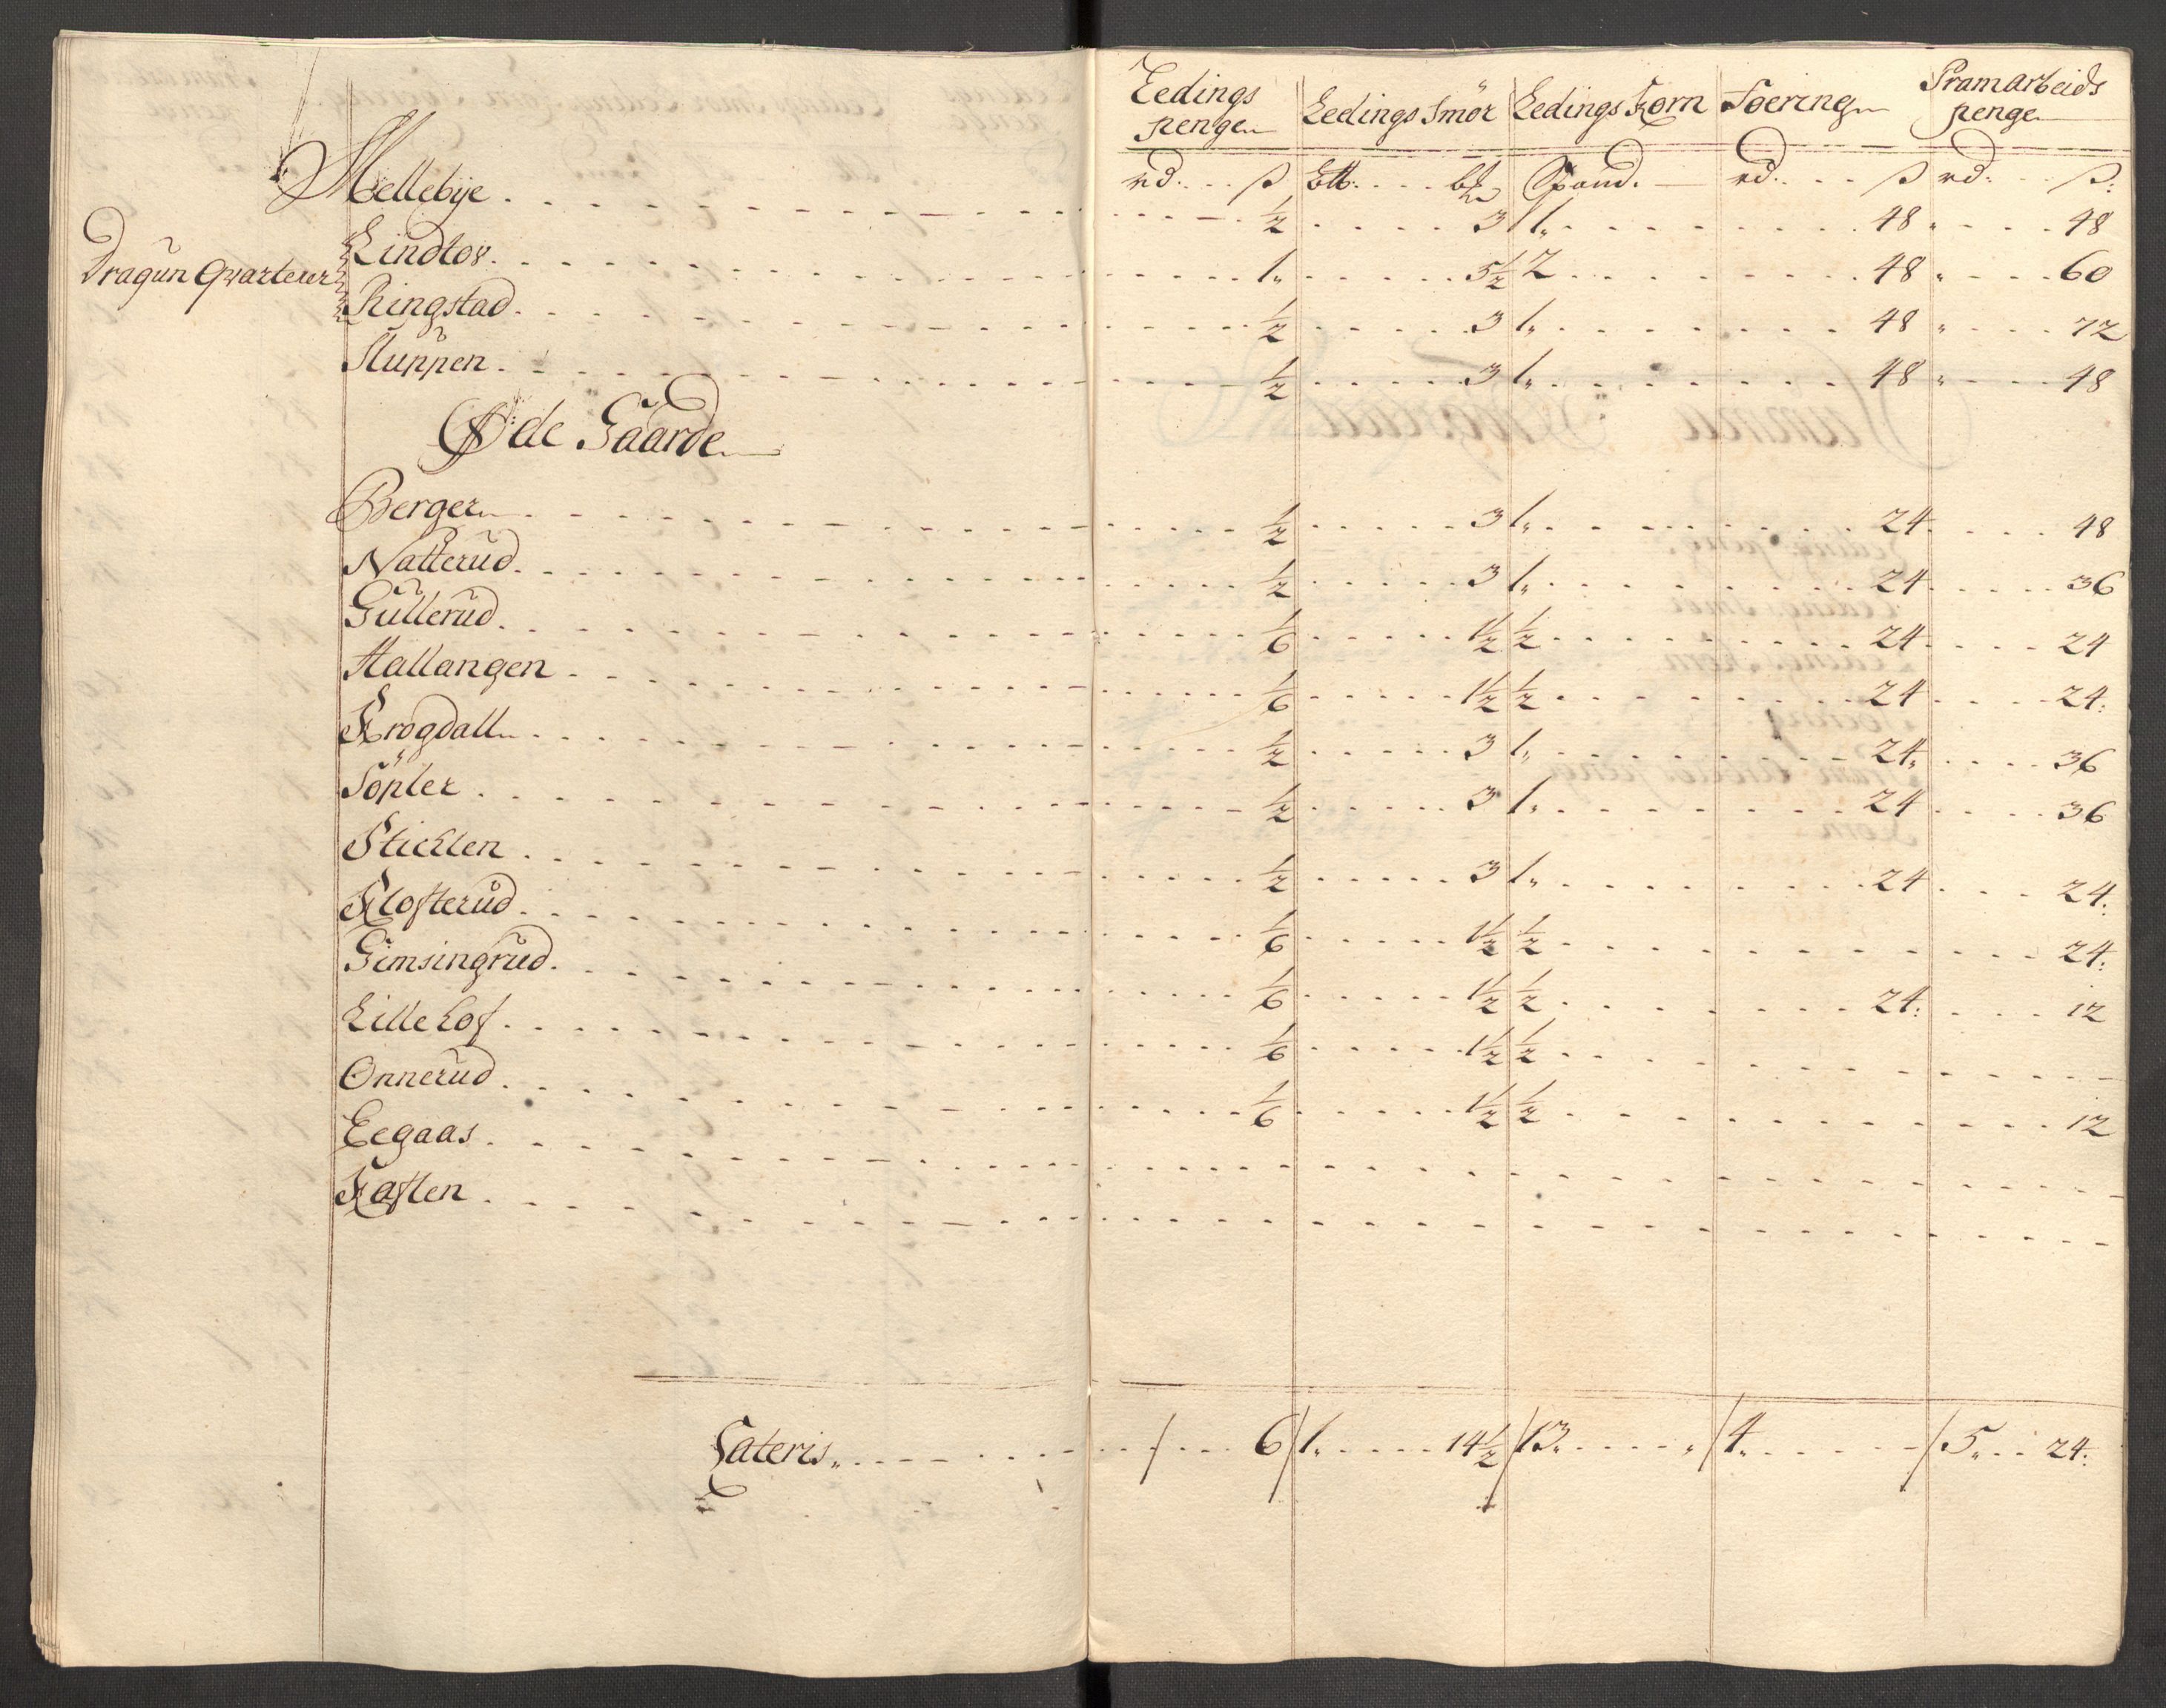 Leedings penge Leedings Smör Leedings Korn Foering Pramarbeids penge
rd: ß Btt: bl Spand. rd: ß rd: ß:
Mellebÿe . ½ 3 1 „ 48 „ 48
Dragun Qvarterer
Lindtos . 1 „ 5½ 2 48 „ 60
Ringstad . ½ 3 1 „ 48 „ 72
Sluppen . ½ 3 1 „ 48 „ 48
Øde Gaarde
Berger . ½ 3 1 „ 24 48
Natterud . ½ 3 1 „ 24 36
Gullerud . 1/6 1½ ½ 24 24
Hallangen . 1/6 1½ ½ 24 24:
Krogdall . ½ 3 1 „ 24 „ 36
Töpler . ½ 3 1 „ 24 36
Sticklen . ½ 3 1 „ 24 24:
Klofterud . 1/6 1½ ½ 24:
Gimsingrud . 1/6 1½ ½ 24: 12
Lille Lof . 1/6 1½ ½
Onnerud . 1/6 1½ ½ 12
Eegaas .
Kaften .
Lateris „ 6 1 „ 14½ 13 „ 4 „ 5 „ 24: